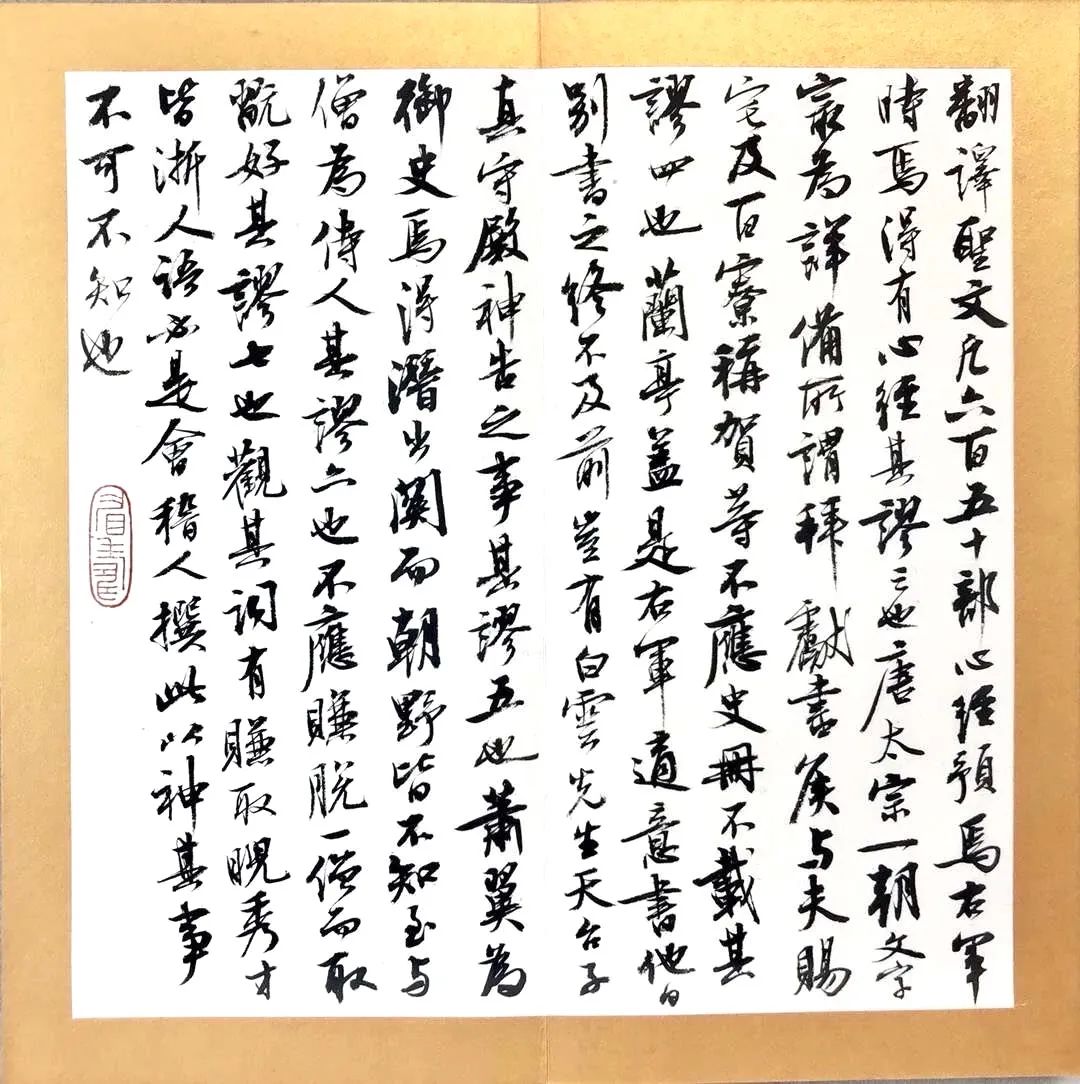 翻譯聖文凡六百五十部心經預焉右軍
時焉得有心經其謬三也唐太宗一朝文字
最為詳備所謂拜獻書侯与夫賜
宅及百寮稱賀等不應史冊不載其
謬四也蘭亭蓋是右軍適意書他日
別書之終不及前豈有白雲先生天台子
真守殿神告之事其謬五也蕭翼為
御史焉得潛出關而朝野皆不知至与
僧為侍人其謬六也不應賺脫一僧而取
翫好其謬七也觀其詞有賺取晛秀才
皆浙人語必是會稽人撰此以神其事
不可不知也